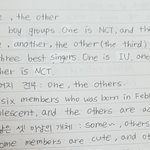 , the other
boy groups. One is NCT, and the
, another, the other (the third)
three best singers One is IU, an
ther is NCT.
여러 : One, the others.
six members who was born in Feb
lescent, and the others are ac
은 셋 이상의 개체 : some~, others
ome members are cute, and ot